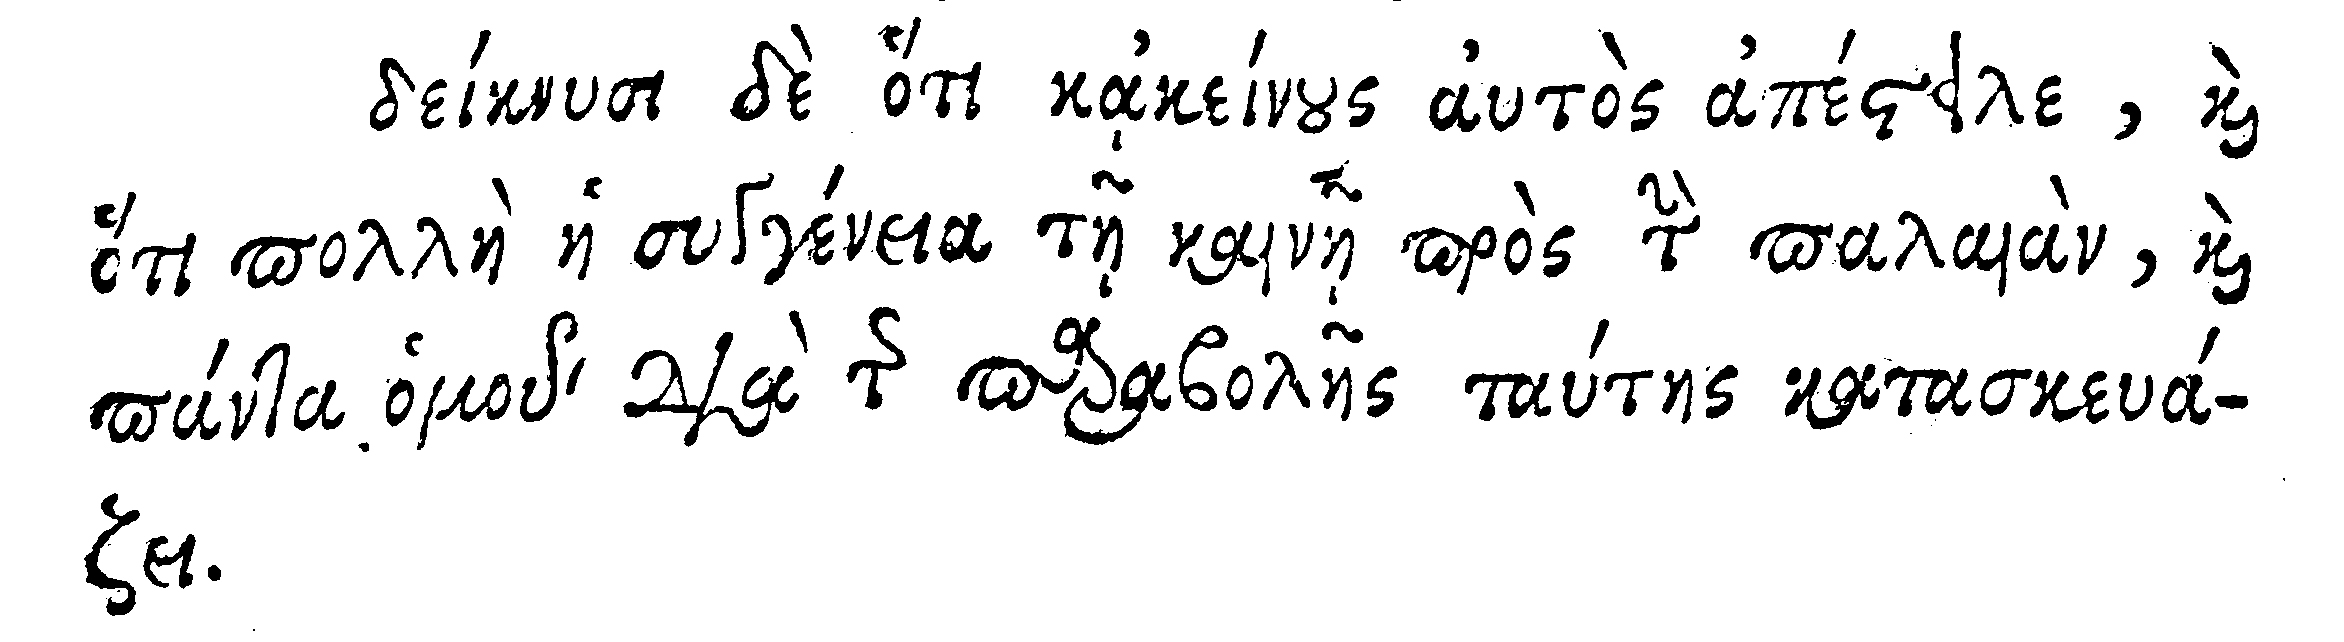 δείκνυσι δὲ ὅτι κᾀκείνους αὐτὸς ἀπέστειλε, καὶ
ὅτι πολλὴ ἡ συγγένεια τῇ καινῇ πρὸς τὴν παλαιὰν, καὶ
πάντα ὁμοῦ διὰ τῆς παραβολῆς ταύτης κατασκευά-
ζει.